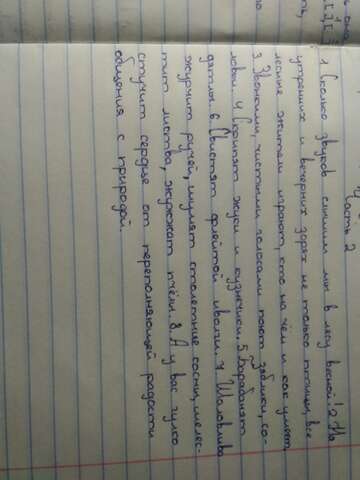 Часть 2
1. Сколько звуков слышим мы в лесу весной! 2. На
утренних и вечерних зорях не только птицы, все
лесные жители играют, кто на чём и как умеет.
3. Звонкими, чистыми голосами поют зяблики, со-
ловьи. 4. Скрипят жуки и кузнечики. 5. Барабанят
дятлы. 6. Свистят флейтой иволги. 7. Шаловливо
журчит ручей, шумят столетние сосны, шелес-
тит листва, жужжат пчёлы. 8. А у вас гулко
стучит сердце от переполняющей радости
общения с природой.